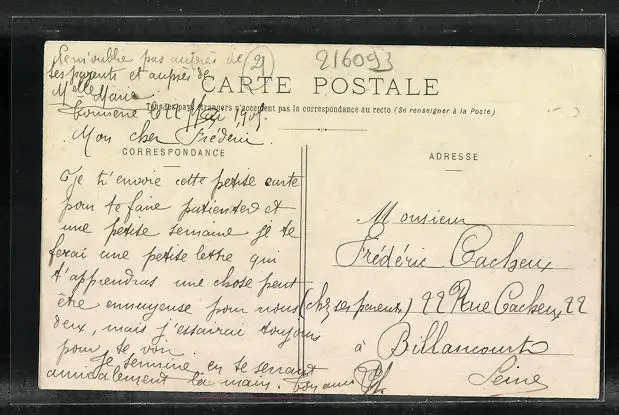 N'en oublie pas auprès de
ses parents et auprès de
Melle Marie.
(21)
216093
CARTE POSTALE
Tous les pays étrangers n'acceptent pas la correspondance au recto (Se renseigner à la Poste)
le 11 Mai 190
Mon cher Frédéric.
CORRESPONDANCE
Je t'envoie cette petite carte
pour te faire patienter et
une petite semaine je te
ferai une petite lettre qui
t'apprendras une chose peut
être ennuyeuse pour nous
deux, mais j'essairai toujours
pour te voir.
Je termine en te serrant
amicalement la main. Ton ami
ADRESSE
Monsieur
Frédéric Cacheux
(chez ses parents) 22 Rue Cacheux 22
à Billancourt
Seine